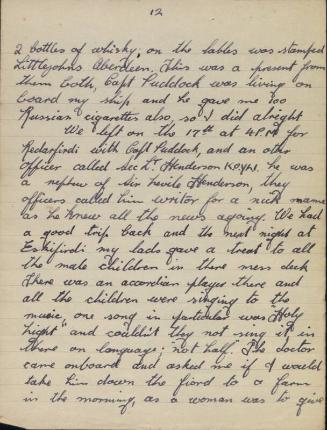 12
2 bottles of whisky; on the lables was stamped
Littlejohns Aberdeen. This was a present from
them both, Capt Puddock was living on
board my ship and he gave me 100
Russian cigarettes also, so I did alright
We left on the 17th at 4PM for
Redarfirdi with Capt Puddock, and an other
officer called Sec Lt Henderson KOYLI. he was
a nephew of Sir Nevile Henderson, they
officers called him writor for a nick name
as he knew all the news agoing. We had
a good trip back and the next night at
Eskifirdi my lads gave a treat to all
the male children in there mess deck
There was an accordian player there and
all the children were singing to the
music, one song in particular was "Holy
night" and couldn't they not sing it, in
there on language; not half. The doctor
came onboard and asked me if I would
take him down the fiord to a farm
in the morning, as a woman was to give